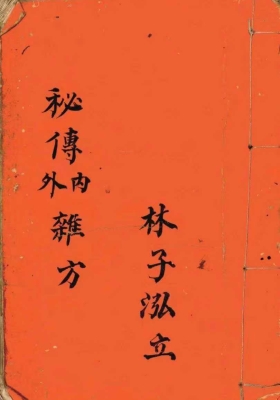 秘傳內外雜方
林子泓立